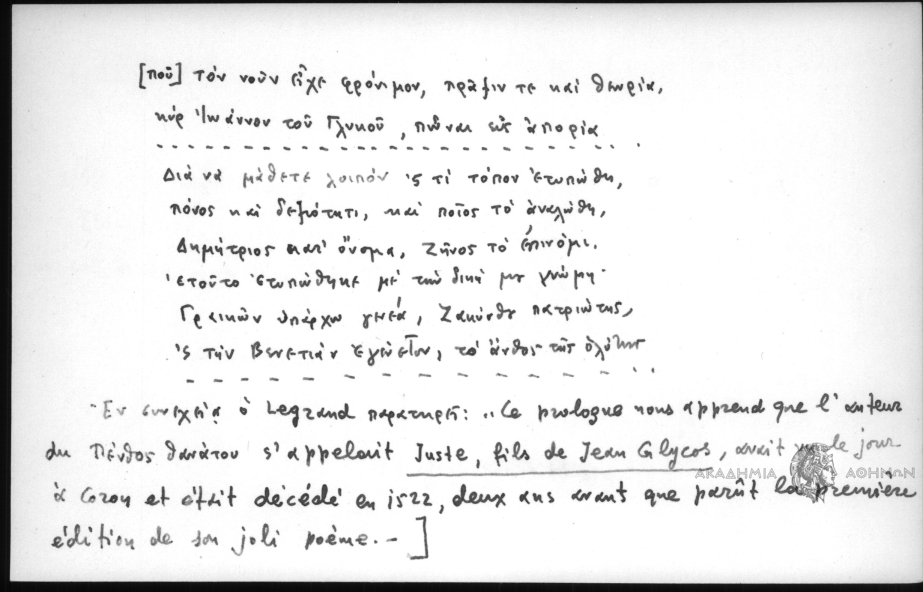 [ποῦ] τὸν νοῦν εἶχε φρόνιμον, πρᾶξιν τε καὶ θεωρία,
κύρ Ἰωάννου τοῦ Γλυκοῦ, πὦναι εἰς ἀπορία
Διὰ νὰ μάθετε λοιπόν 'ς τί τόπον ἐτυπώθη,
πόνος καὶ δεξιότητι, καὶ ποῖος τὸ ἀναλώθη,
Δημήτριος κατ' ὄνομα, Ζῆνος τὸ ἐπινόμι.
ἐτοῦτο ἐτυπώθηκε μὲ τὴν δική μου γνώμη·
Γραικῶν ὑπάρχω γενεά, Ζακύνθου πατριώτης,
'ς τὴν Βενετιάν ἐγένετον, τὸ ἄνθος τῆς ὁλότης
Ἐν συνεχείᾳ ὁ Legrand παρατηρεῖ: „Ce prologue nous apprend que l'auteur
du Πένθος θανάτου s'appelait Juste, fils de Jean Glycos, avait vu le jour
à Coron et était décédé en 1522, deux ans avant que parût la première
édition de son joli poème.-]
ΑΚΑΔΗΜΙΑ ΑΘΗΝΩΝ